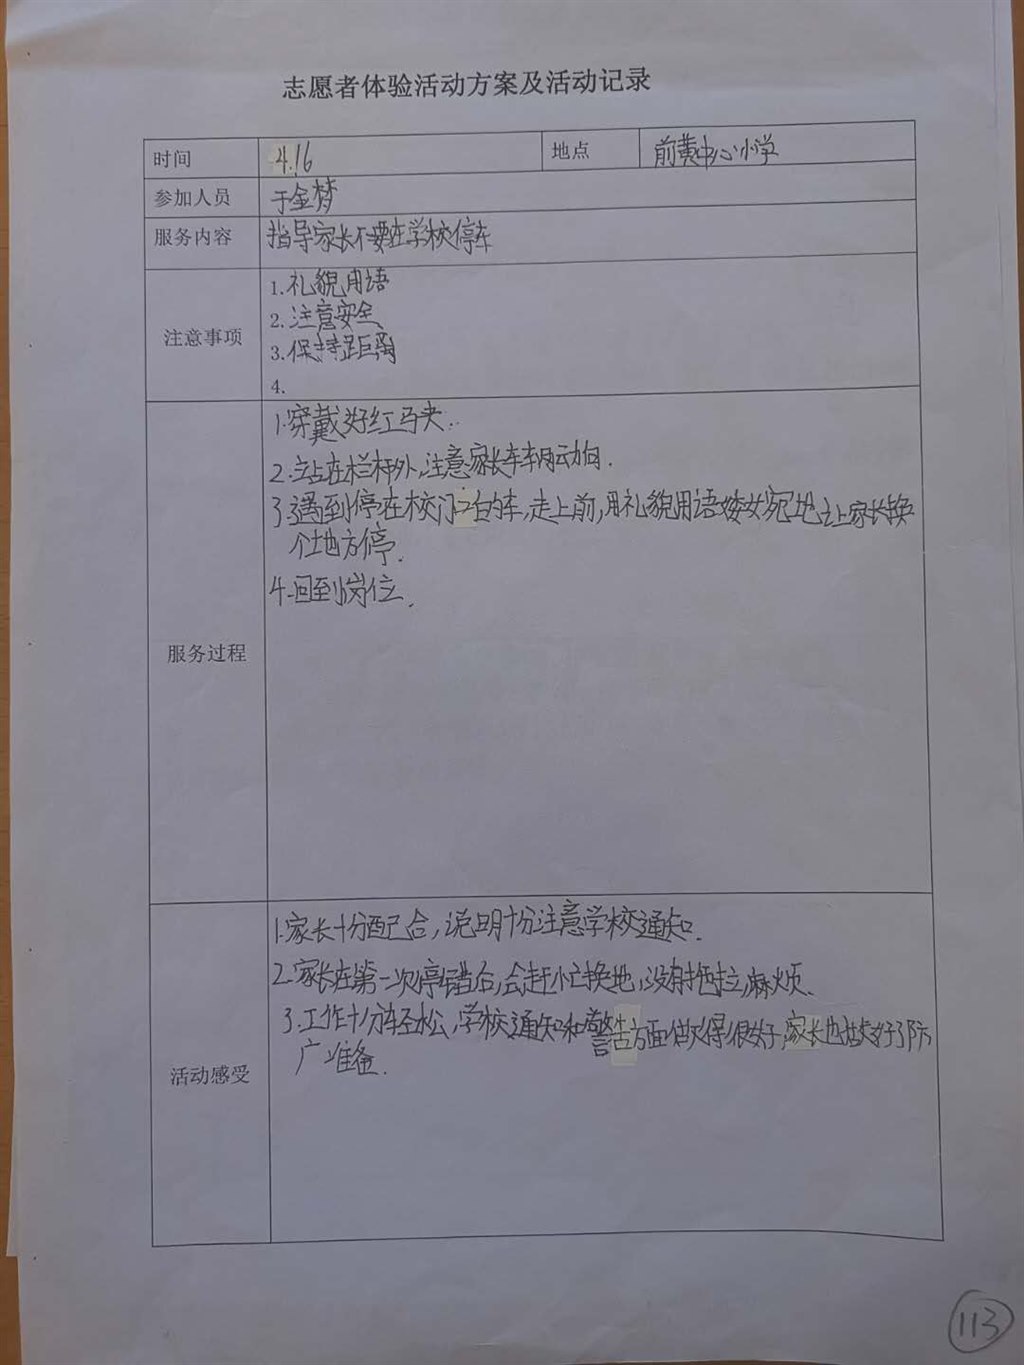 志愿者体验活动方案及活动记录
时间 4.16 地点 前黄中心小学
参加人员 于金梦
服务内容 指导家长不要在学校停车
注意事项
1.礼貌用语
2.注意安全
3.保持距离
4.
服务过程
1.穿戴好红马夹.
2.站在栏杆外,注意家长车辆动向.
3.遇到停在校门口的车,走上前,用礼貌用语委婉地让家长换
个地方停.
4.回到岗位.
活动感受
1.家长十分配合,说明十分注意学校通知.
2.家长在第一次停错后,会赶忙换地,没有拖拉,麻烦.
3.工作十分轻松,学校通知和警告方面做得很好,家长也做好了防
广准备.
113